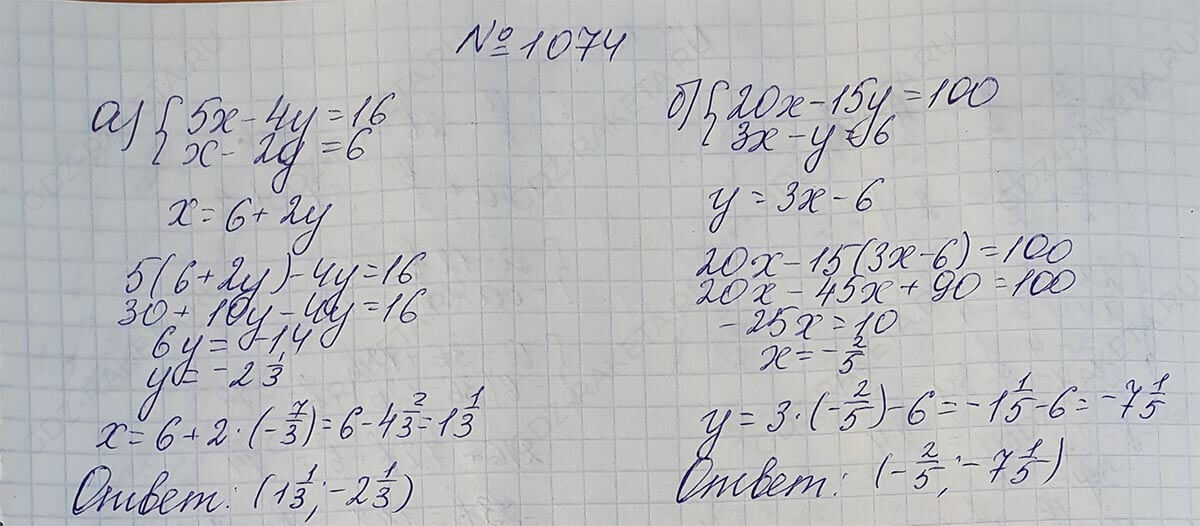 № 1074
а) { 5x - 4y = 16
x - 2y = 6
x = 6 + 2y
5(6 + 2y) - 4y = 16
30 + 10y - 4y = 16
6y = -14
y = -2 1/3
x = 6 + 2 · (-7/3) = 6 - 4 2/3 = 1 1/3
Ответ: (1 1/3; -2 1/3)
б) { 20x - 15y = 100
3x - y = 6
y = 3x - 6
20x - 15(3x - 6) = 100
20x - 45x + 90 = 100
-25x = 10
x = -2/5
y = 3 · (-2/5) - 6 = -1 1/5 - 6 = -7 1/5
Ответ: (-2/5; -7 1/5)
GDZ-RAKETA.RU